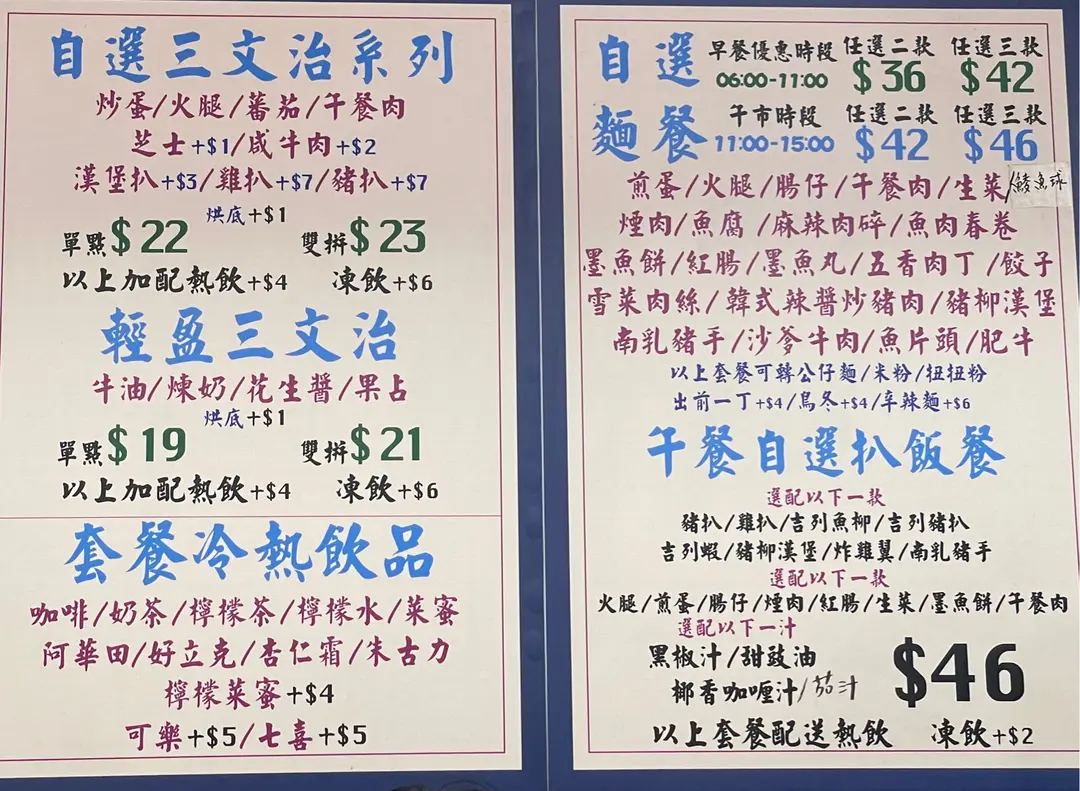 自選三文治系列
炒蛋/火腿/蕃茄/午餐肉
芝士+$1/咸牛肉+$2
漢堡扒+$3/雞扒+$7/豬扒+$7
烘底+$1
單點$22 雙拼$23
以上加配熱飲+$4 凍飲+$6
輕盈三文治
牛油/煉奶/花生醬/果占
烘底+$1
單點$19 雙拼$21
以上加配熱飲+$4 凍飲+$6
套餐冷熱飲品
咖啡/奶茶/檸檬茶/檸檬水/菜蜜
阿華田/好立克/杏仁霜/朱古力
檸檬菜蜜+$4
可樂+$5/七喜+$5
自選 早餐優惠時段 任選二款 任選三款
06:00-11:00 $36 $42
麵餐 午市時段 任選二款 任選三款
11:00-15:00 $42 $46
煎蛋/火腿/腸仔/午餐肉/生菜/鯪魚球
煙肉/魚腐/麻辣肉碎/魚肉春卷
墨魚餅/紅腸/墨魚丸/五香肉丁/餃子
雪菜肉絲/韓式辣醬炒豬肉/豬柳漢堡
南乳豬手/沙爹牛肉/魚片頭/肥牛
以上套餐可轉公仔麵/米粉/扭扭粉
出前一丁+$4/烏冬+$4/辛辣麵+$6
午餐自選扒飯餐
選配以下一款
豬扒/雞扒/吉列魚柳/吉列豬扒
吉列蝦/豬柳漢堡/炸雞翼/南乳豬手
選配以下一款
火腿/煎蛋/腸仔/煙肉/紅腸/生菜/墨魚餅/午餐肉
選配以下一汁
黑椒汁/甜豉油
椰香咖喱汁/茄汁
$46
以上套餐配送熱飲 凍飲+$2